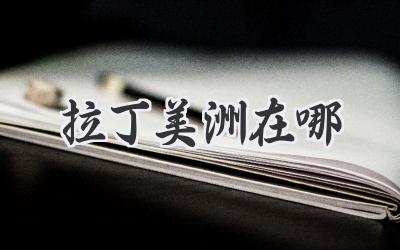 拉丁美洲在哪